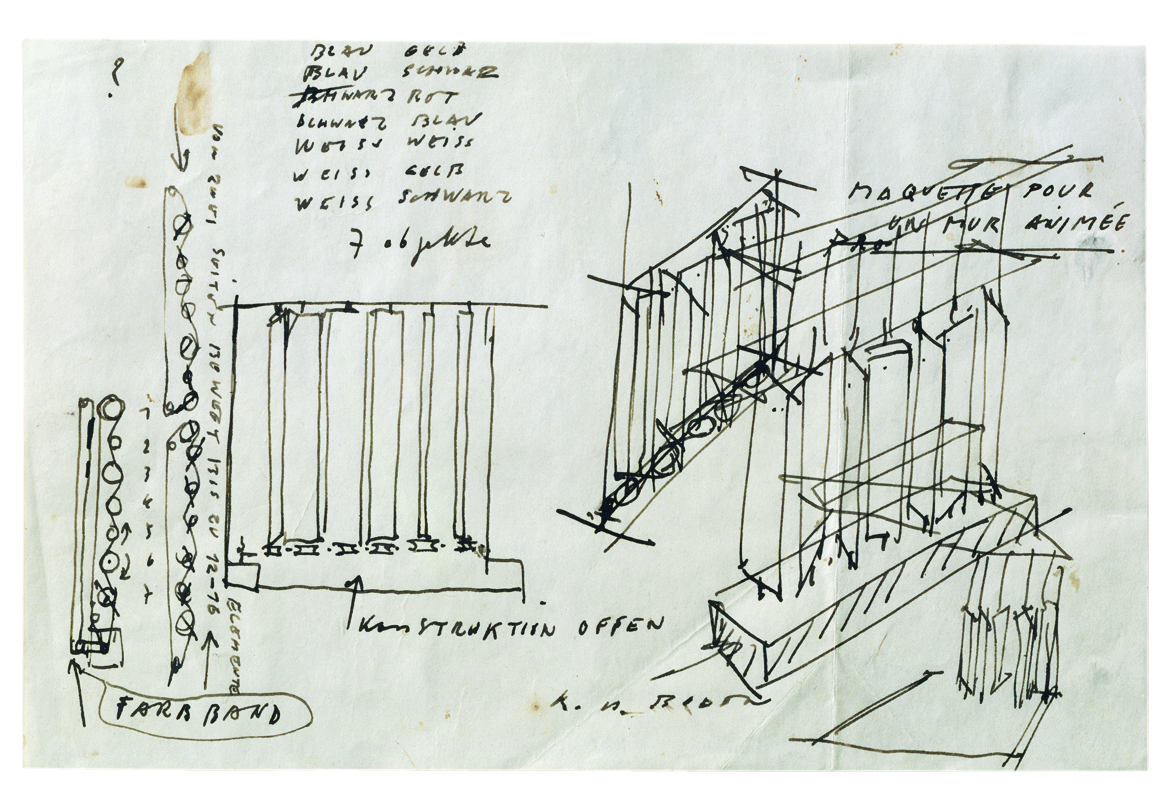 ?
BLAU GELB
BLAU SCHWARZ
SCHWARZ ROT
SCHWARZ BLAU
WEISS WEISS
WEISS GELB
WEISS SCHWARZ
7 objekte
MAQUETTE POUR
UN MUR ANIMÉE
VON ZWEI SEITEN BEWEGT BIS ZU 12-16
ELEMENTE
1
2
3
4
5
6
7
KONSTRUKTION OFFEN
FARBBAND